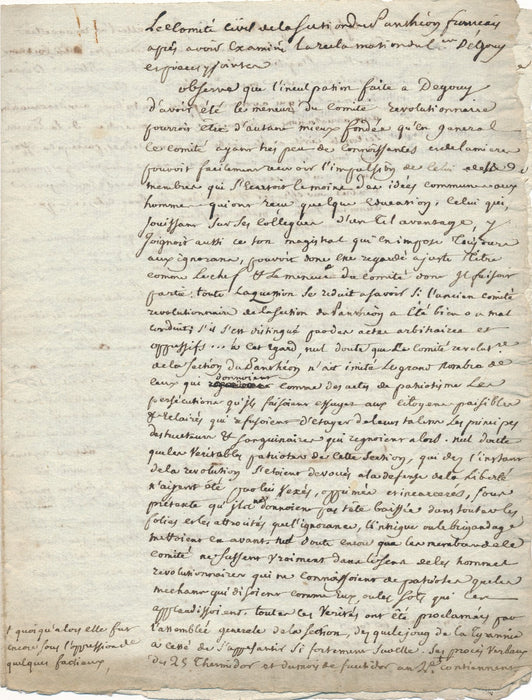 Le Comité Civil de la Section du Panthéon français
après avoir Examiné la reclamation du C.en Degouy
et pieces y jointes
observe que l'inculpation faite a Degouy
d'avoir été le meneur du Comité revolutionnaire
pourroit être d'autant mieux fondée qu'en general
le Comité ayant très peu de Connoissances et de lumiere
pouvoit facilement recevoir l'impulsion de Celui de ses
membres qui s'écartoit le moins des idées communes aux
hommes qui ont reçu quelque Education, Celui qui,
jouissant sur ses Collegues d'un tel avantage, y
joignoit aussi ce ton magistral qui En impose toujours
aux ignorans, pouvoit donc être regardé a juste titre
comme le chef & le meneur du Comité dont il faisoit
partie. toute la question se reduit a savoir si l'ancien Comité
revolutionnaire de la Section du Panthéon a Eté bien ou mal
conduit; s'il s'est distingué par des actes arbitraires et
oppressifs... a cet Egard, nul doute que le Comité revolut.re
de la Section du Panthéon n'ait imité le grand nombre de
ceux qui donnoient comme des actes de patriotisme les
persécutions qu'ils faisoient essuyer aux Citoyens paisibles
& Eclairés qui refusoient d'étayer de leurs talens les principes
destructeurs & sanguinaires qui regnoient alors. nul doute
que les Veritables patriotes de Cette Section, qui dès l'instant
de la revolution s'étoient devoués a la defense de la Liberté
n'aient été par lui Vexés, opprimés et incarcerés, sous
pretexte qu'ils ne donnoient pas tête baissée dans toutes les
folies et les atrocités que l'ignorance, l'intrigue ou le brigandage
mettoient en avant. nul doute encore que les membres de ce
Comité ne fussent vraiment dans le sens de ces hommes
revolutionnaires qui ne connoissoient de patriotes que les
mechans qui disoient comme Eux, ou les sots qui les
applaudissoient. toutes ces Verités ont été proclamées par
l'assemblée generale de la Section, dès que le joug de la tyrannie
a cessé de s'appesantir si fortement sur Elle. Ses procès Verbaux
des 25 Thermidor et du mois de fructidor an 2e. contiennent
† quoiqu'alors elle fut
encore sous l'oppression de
quelques factieux